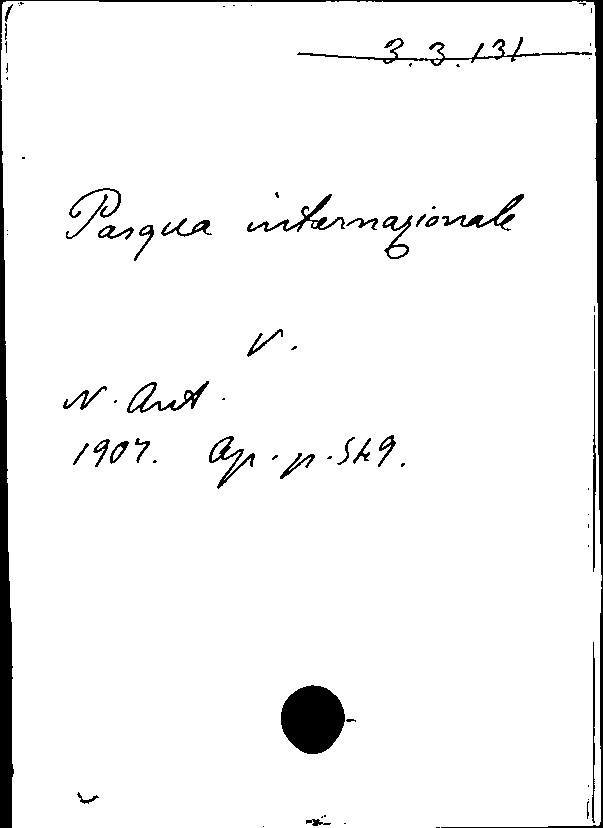 3.3.131
Pasqua internazionale
V.
N. Ant.
1907. Ap. p. 549.